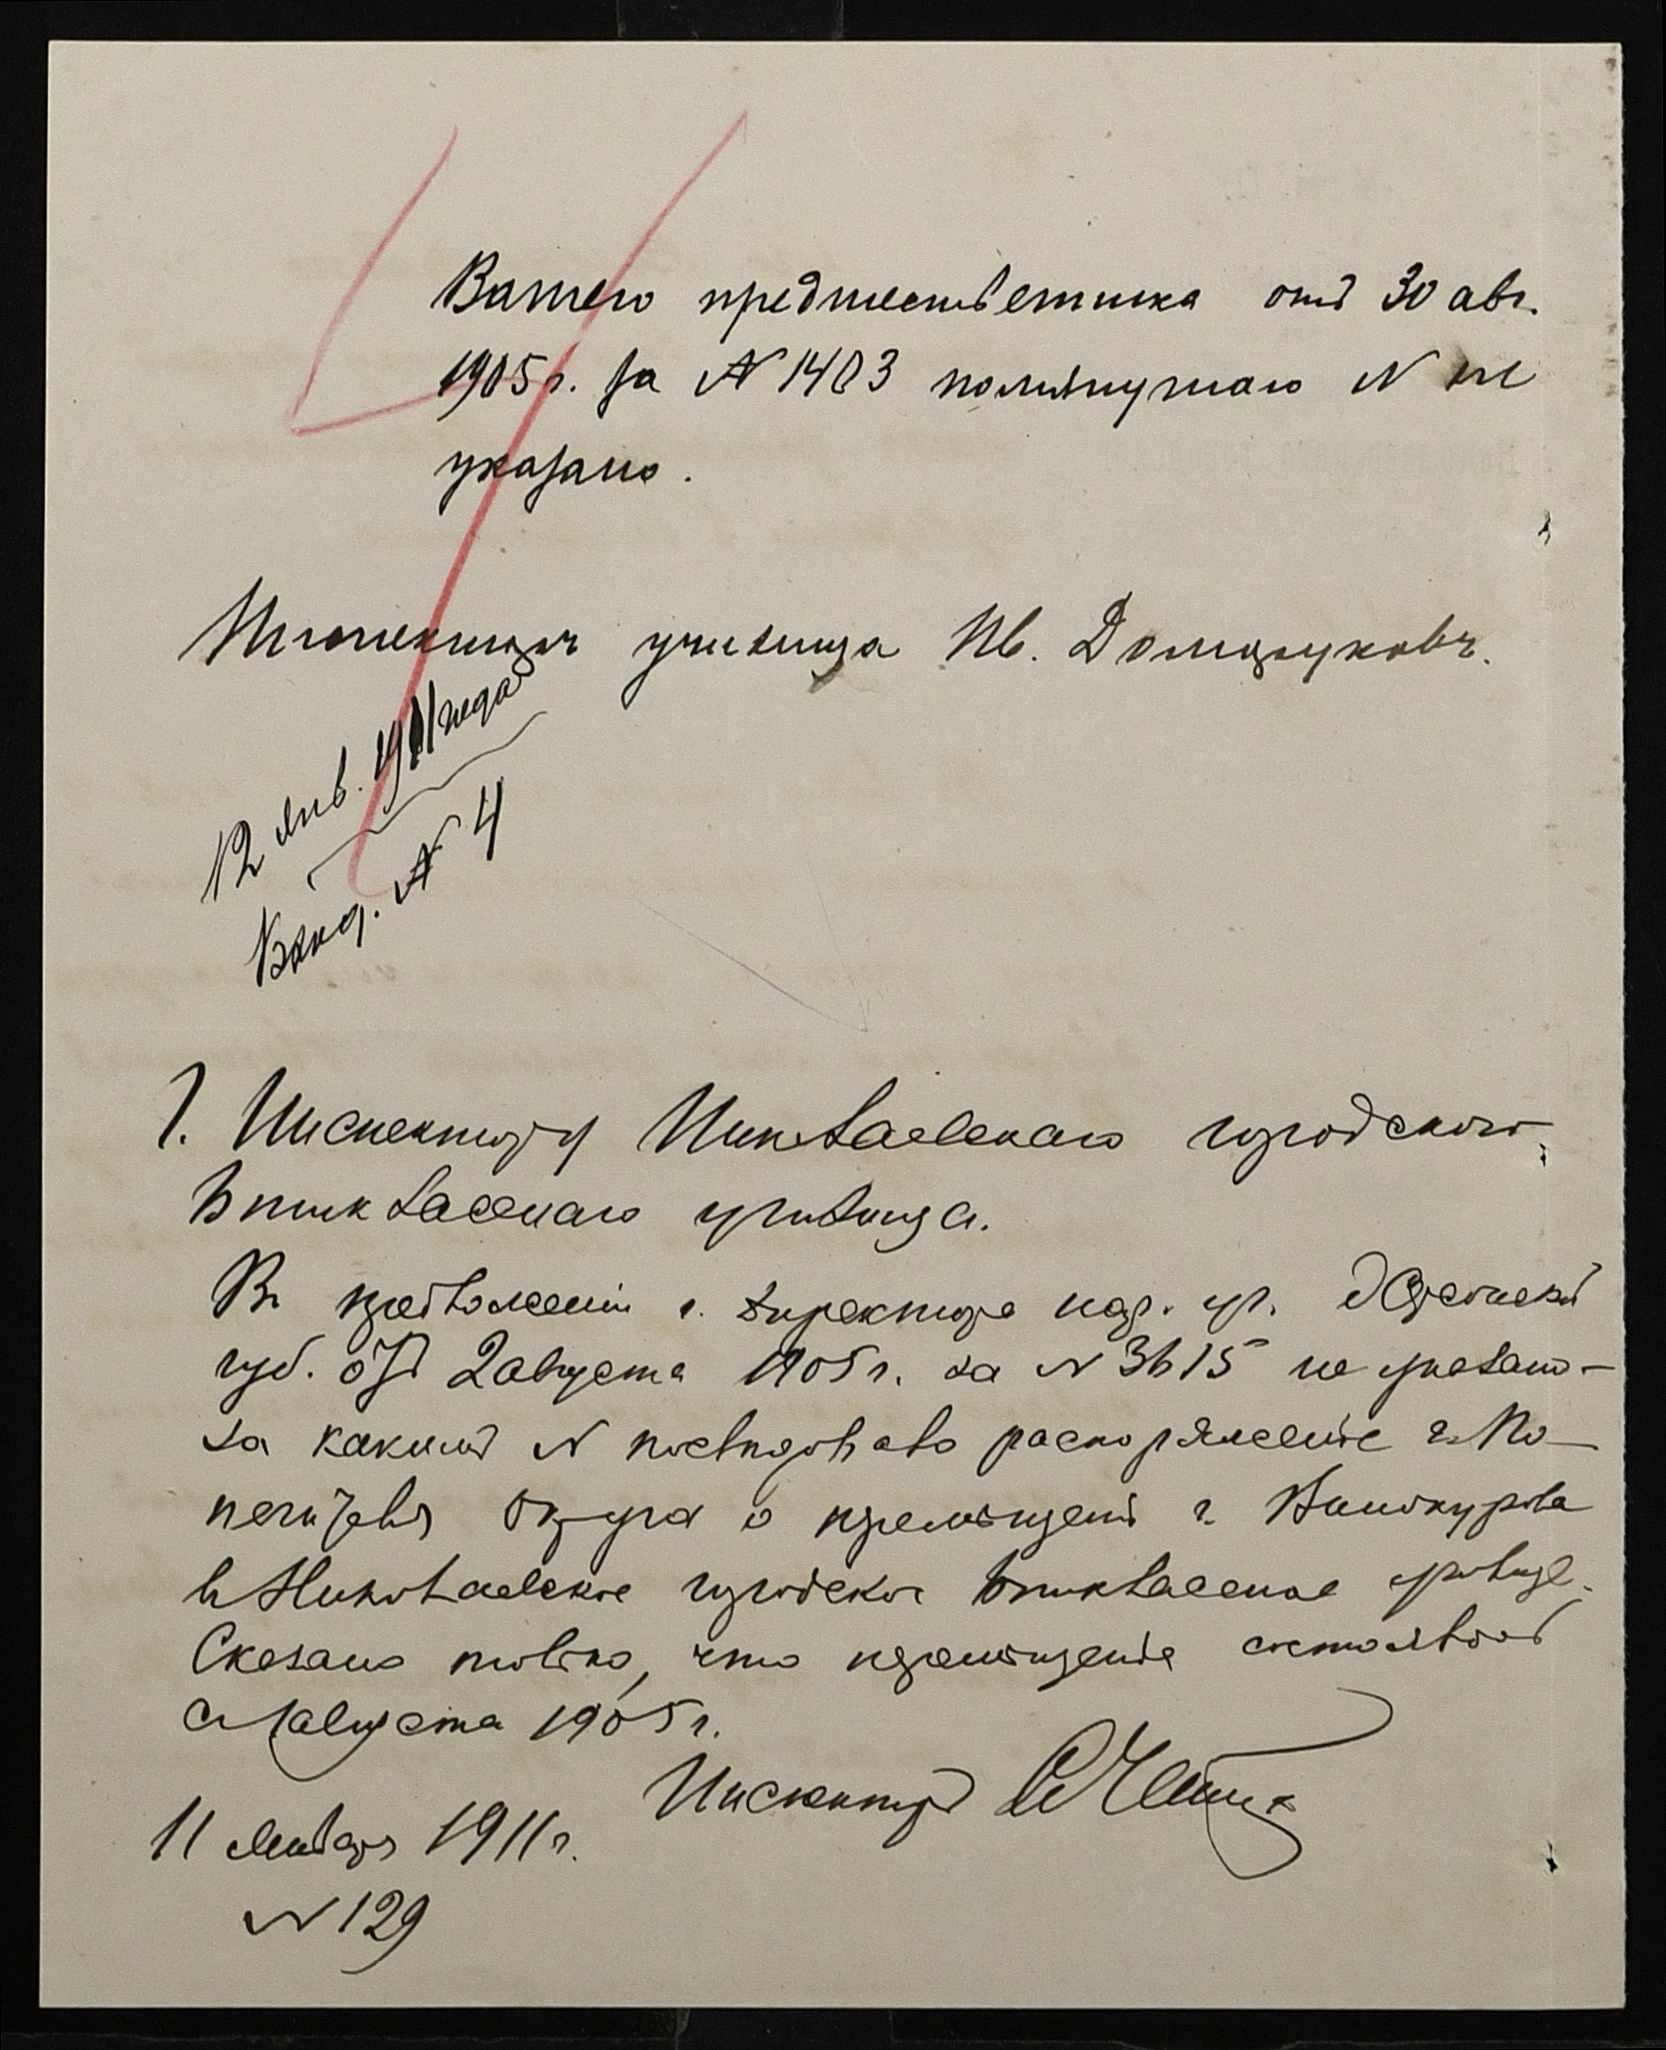 Вашего предшественника отъ 30 авг.
1905 г. за № 1403 помянутаго № не
указано.
Инспекторъ училища Ив. Домбруковъ.
12 янв. 1911 года
Вход. № 4
Г. Инспектору Николаевскаго городского
3 классного училища.
Въ предложеніи г. директора нар. уч. Херсонской
губ. отъ 2 августа 1905 г. за № 3615 не указано
за какимъ № последовало распоряженіе г. По-
печителя Округа о перемѣщеніи г. Винокурова
въ Николаевское городское училище.
Сказано только, что перемѣщеніе состоялось
съ 1 августа 1905 г.
Инспекторъ
11 января 1911 г.
№ 129